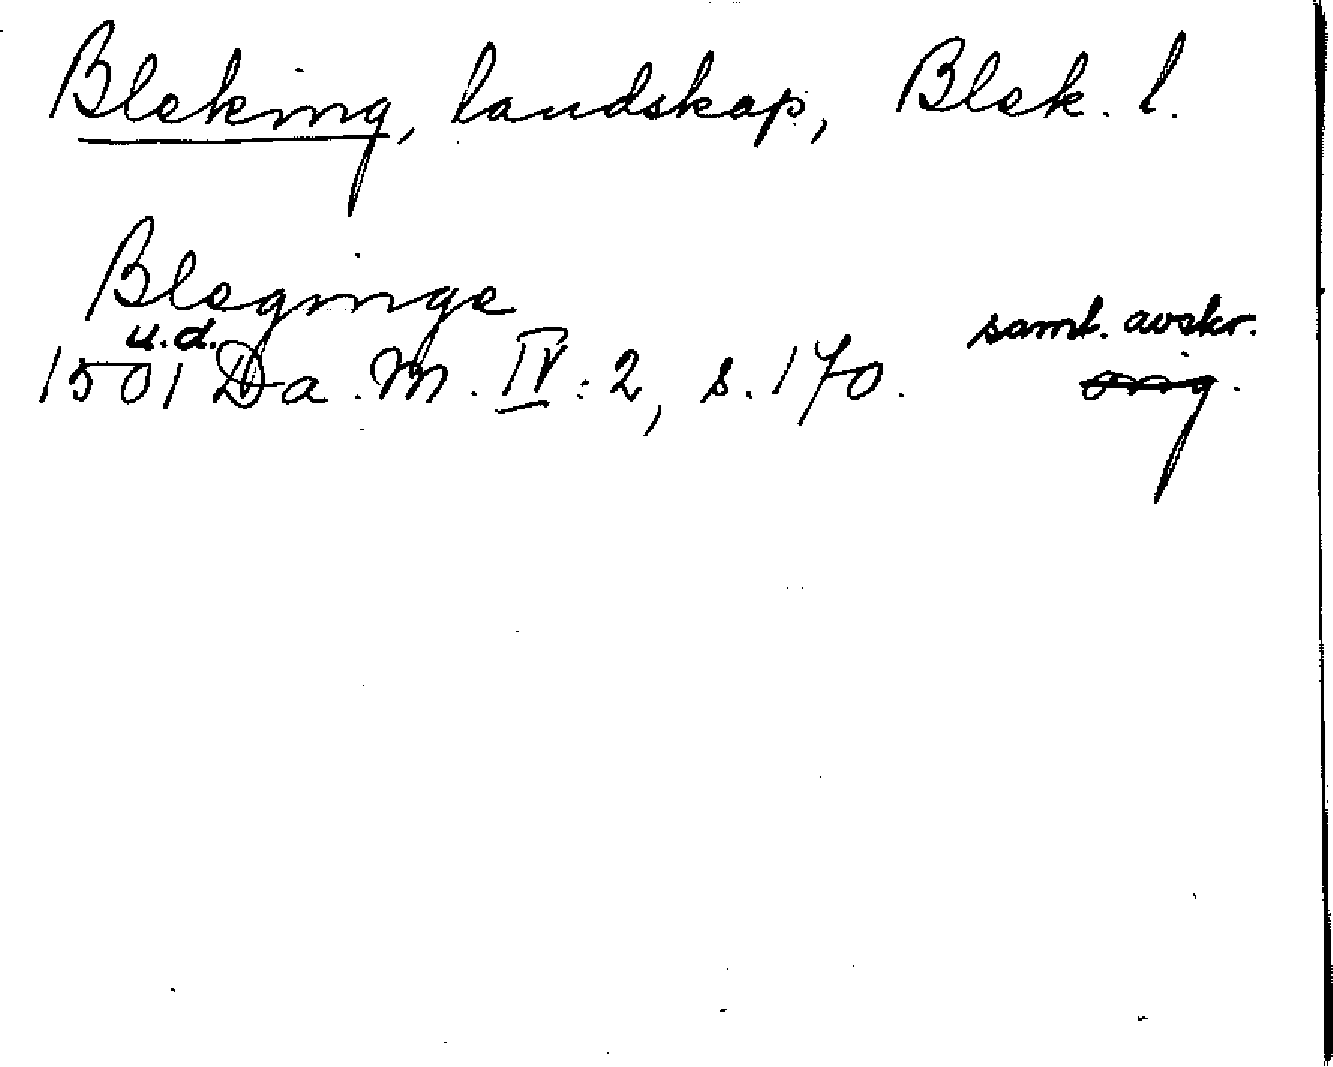 Bleking, landskap, Blek. l.
Bleginge
u.d. samt. avskr.
1501 Da. M. IV: 2, s. 170. orig.